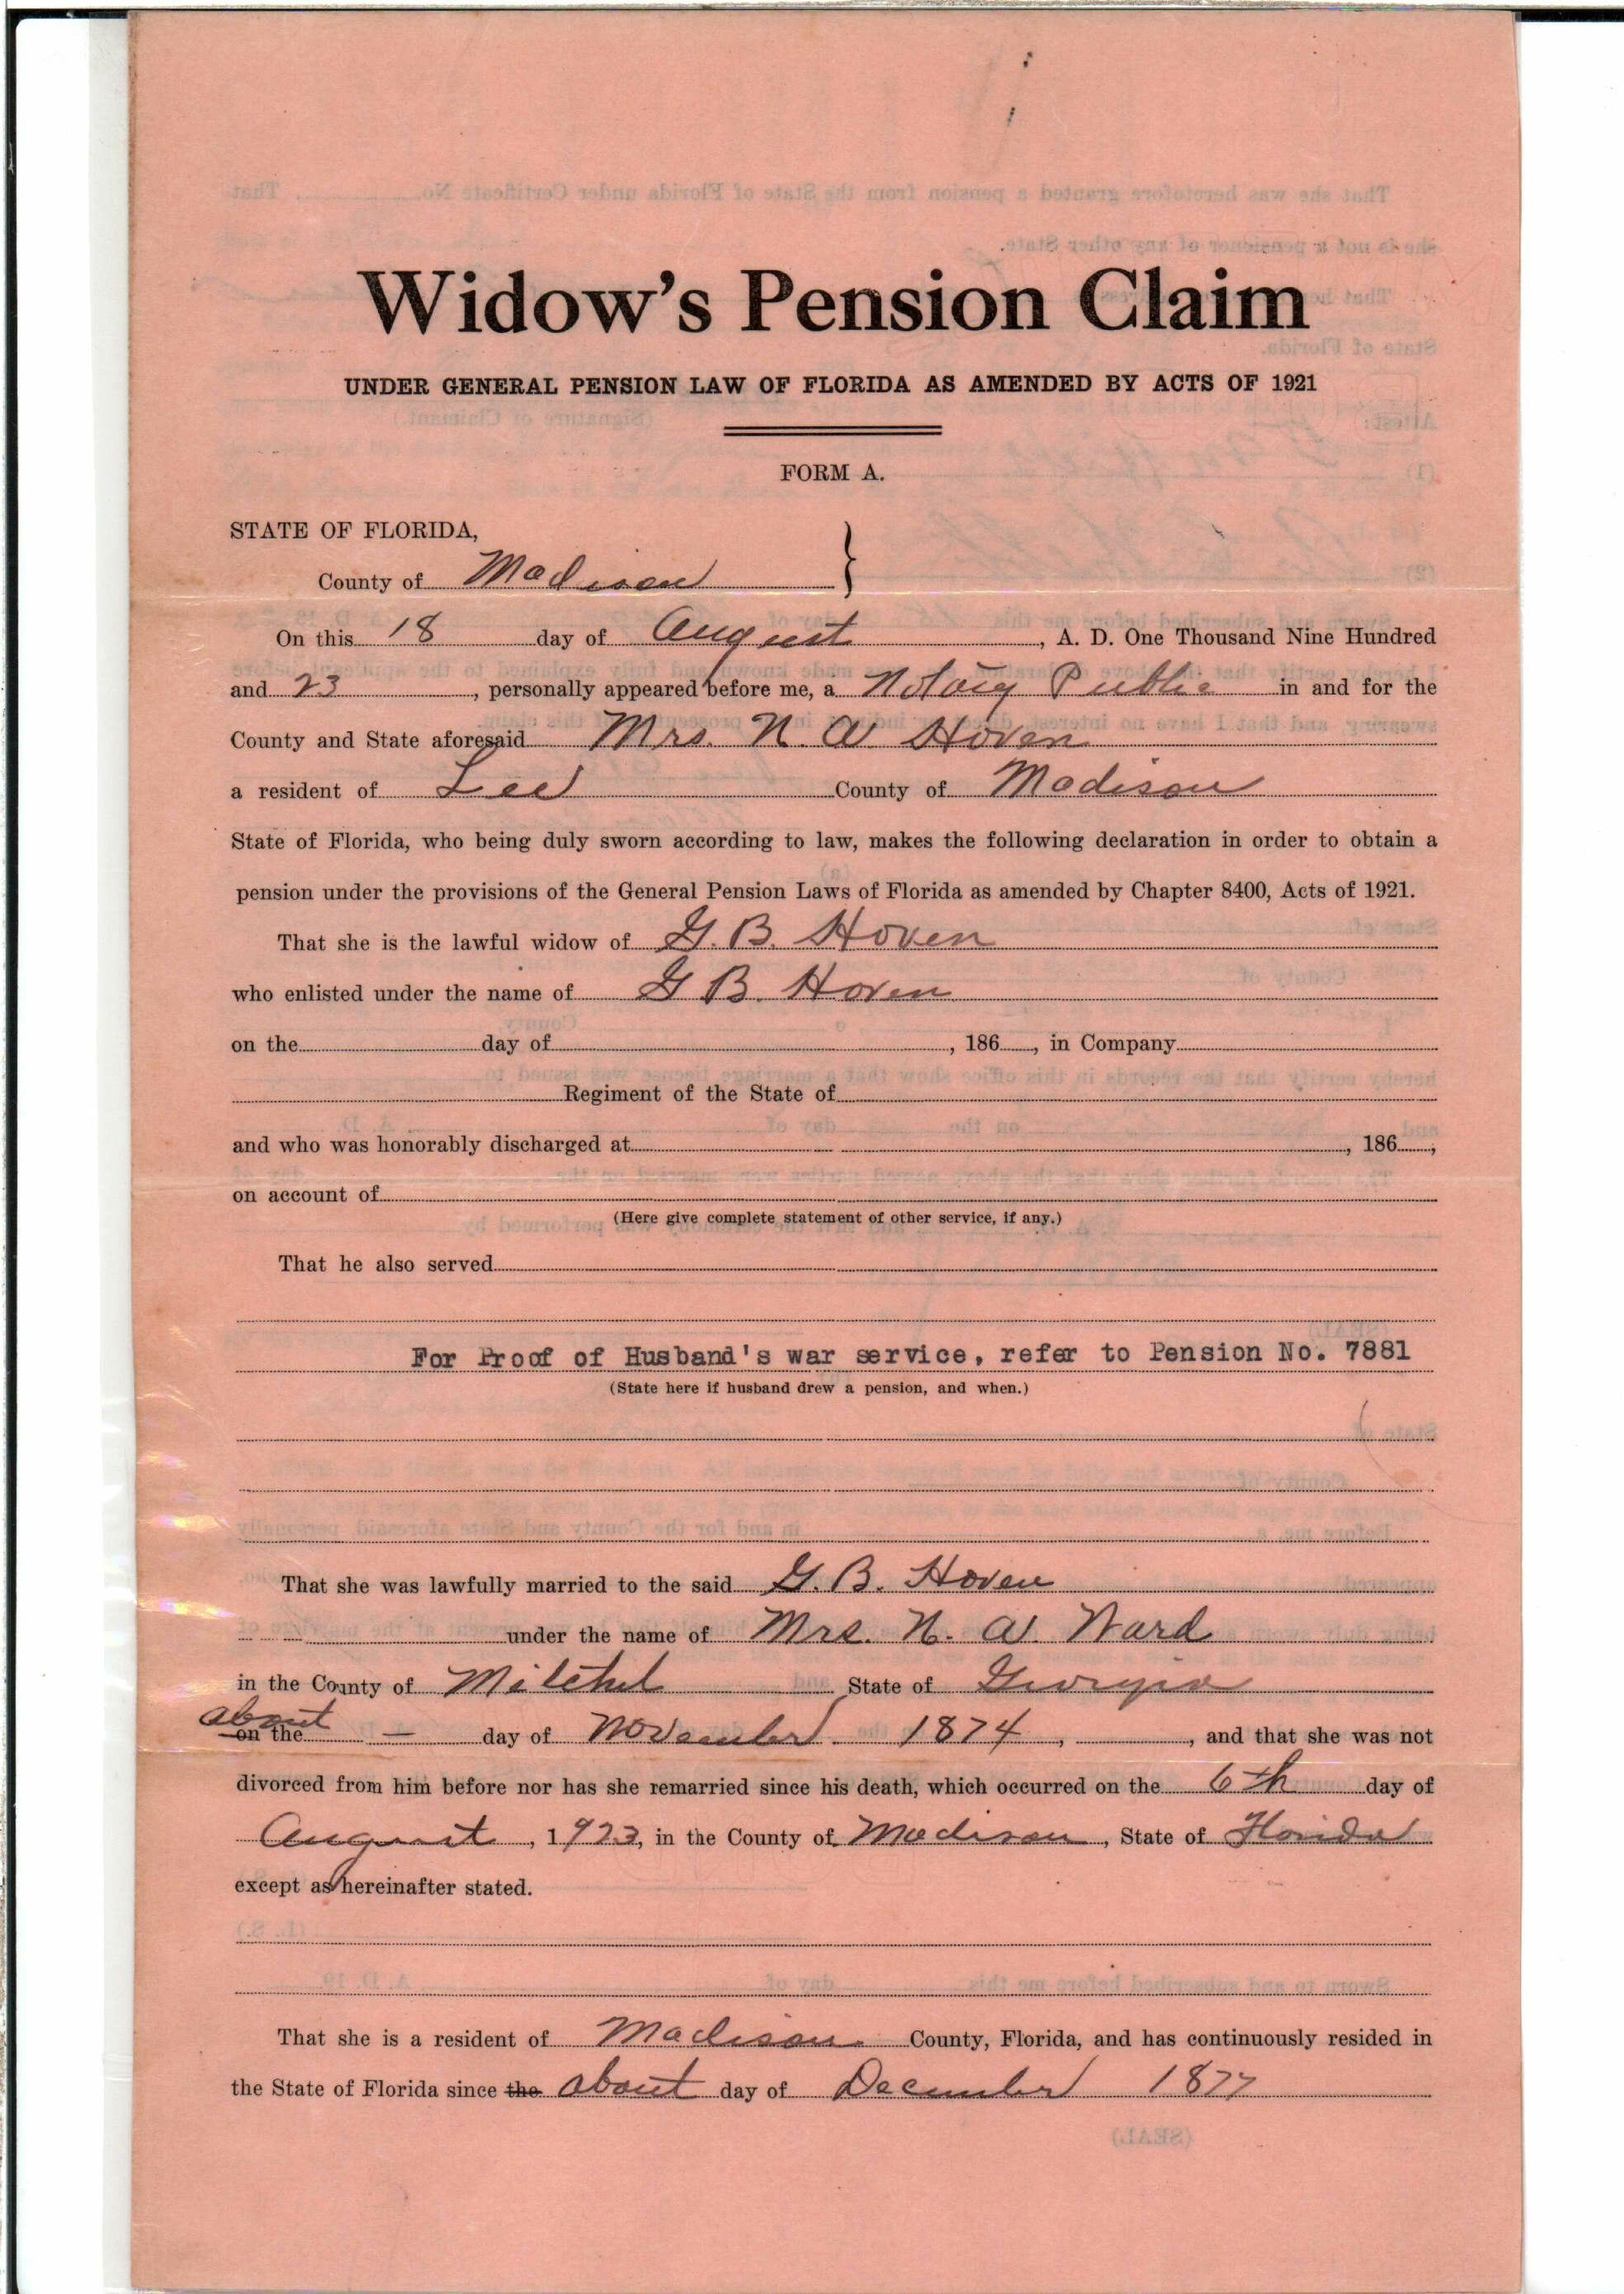 Widow's Pension Claim
UNDER GENERAL PENSION LAW OF FLORIDA AS AMENDED BY ACTS OF 1921
FORM A.
STATE OF FLORIDA,
County of Madison }
On this 18 day of August, A. D. One Thousand Nine Hundred
and 23, personally appeared before me, a Notary Public in and for the
County and State aforesaid Mrs. N. A Hoven
a resident of Lee County of Madison
State of Florida, who being duly sworn according to law, makes the following declaration in order to obtain a
pension under the provisions of the General Pension Laws of Florida as amended by Chapter 8400, Acts of 1921.
That she is the lawful widow of G. B. Hoven
who enlisted under the name of G B. Hoven
on the day of , 186 , in Company
Regiment of the State of
and who was honorably discharged at , 186 ;
on account of
(Here give complete statement of other service, if any.)
That he also served
For Proof of Husband's war service, refer to Pension No. 7881
(State here if husband drew a pension, and when.)
That she was lawfully married to the said G. B. Hoven
under the name of Mrs. N. A. Ward
in the County of Mitchel State of Georgia
about
on the — day of November 1874, , and that she was not
divorced from him before nor has she remarried since his death, which occurred on the 6th day of
August, 1923, in the County of Madison, State of Florida
except as hereinafter stated.
That she is a resident of Madison County, Florida, and has continuously resided in
the State of Florida since the about day of December 1877